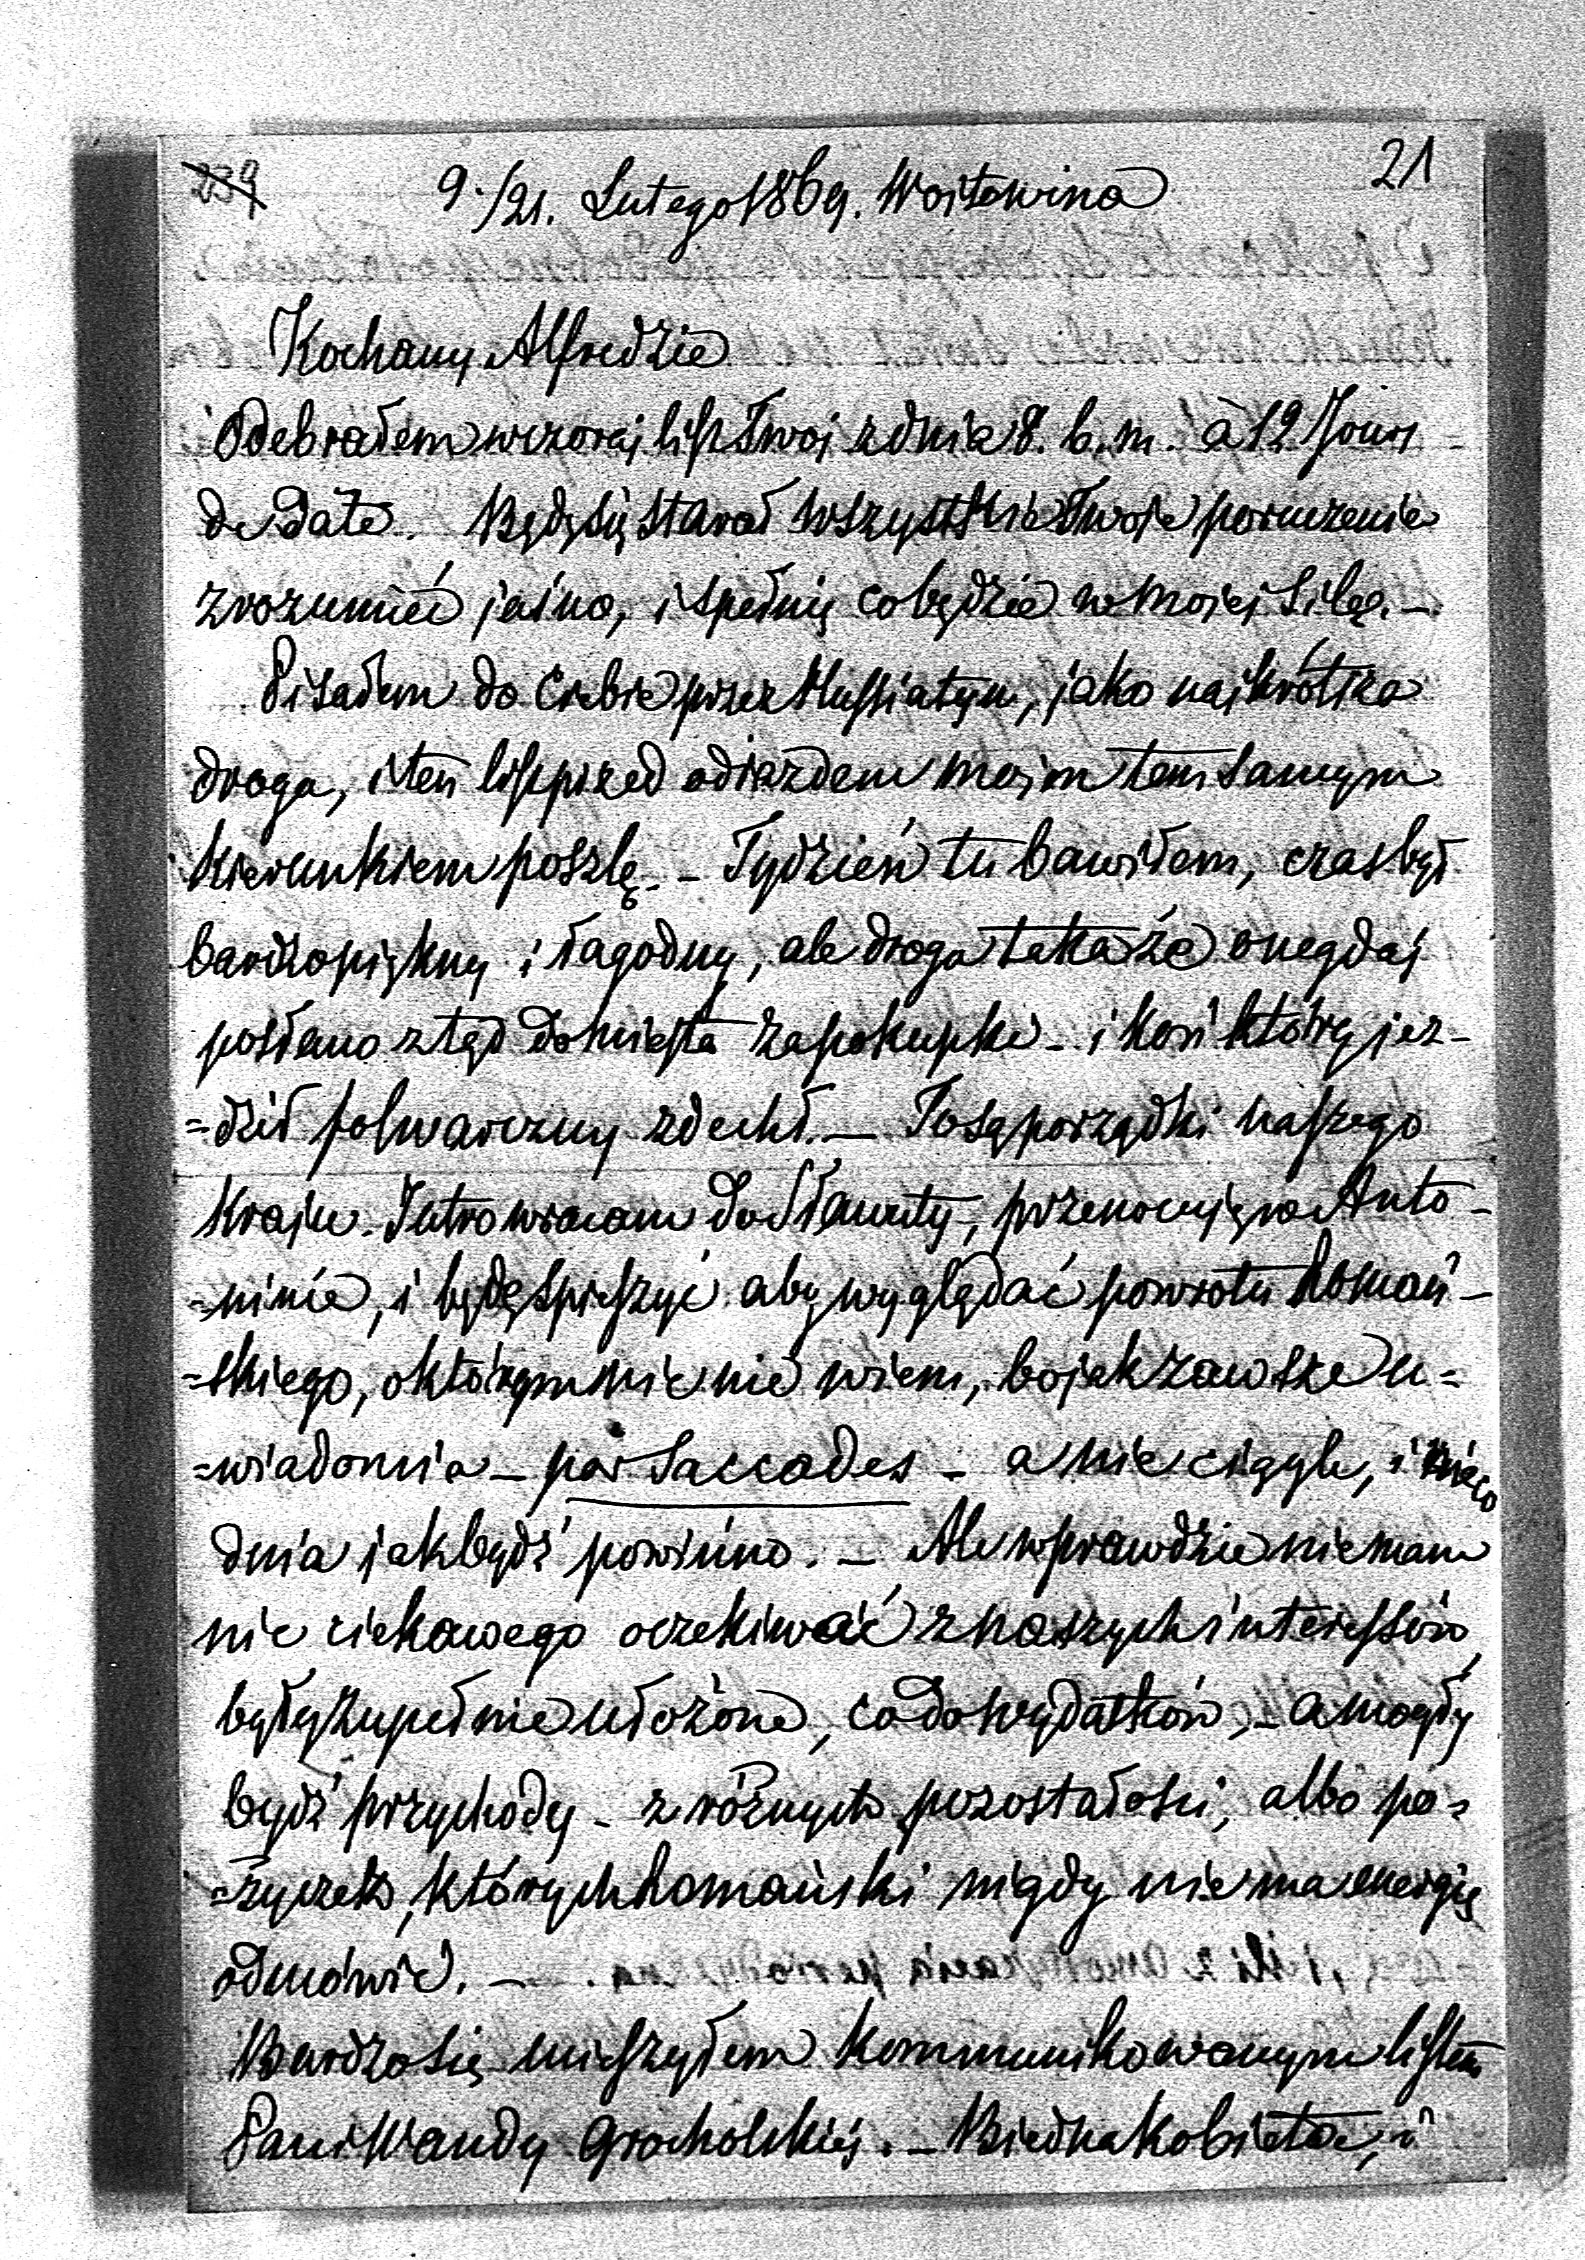 239 21
9./21. Lutego 1869. Woitowina
Kochany Alfredzie
Odebrałem wczoraj list Twoj z dnia 8. b.m. à 12 Jours
de Date. Będę się starał wszystkie Twoje poruczenie
zrozumieć jaśno, i spełnię co będzie w mojej siłę. –
Pisałem do Ciebie przez Hussiatyn, jako najkrótsza
droga, i ten list przed odiazdem mojm tem samym
kierunkiem poszlę. – Tydzień tu bawiłem, czas był
bardzo piękny i łagodny, ale droga taka że onegdaj
posłano ztąd do miasta za pokupką – i koń który jez-
=dził folwarczny zdechł. – To są porządki naszego
Kraju. Jutro wracam do Sławuty, przenocuję w Anto-
=ninie, i będę spieszyć aby wyglądać powrotu Domań-
=skiego, o którym nic nie wiem, bo jak zawsze u=
=wiadomia – par Saccades – a nie ciągle, i co
dnia jak bydź powinno. – Ale wprawdzie nie mam
nic ciekawego oczekiwać z naszych interessów,
były zupełnie ułożone, co do wydatków, – a mogły
bydź przychody – z różnych pozostałości, albo po=
=życzek, których Domański nigdy nie ma energię
odmówić. –
Bardzo się ucieszyłem kommunikowanym listem
Pani Wandy Grocholskiej. – Biedna kobieta, i